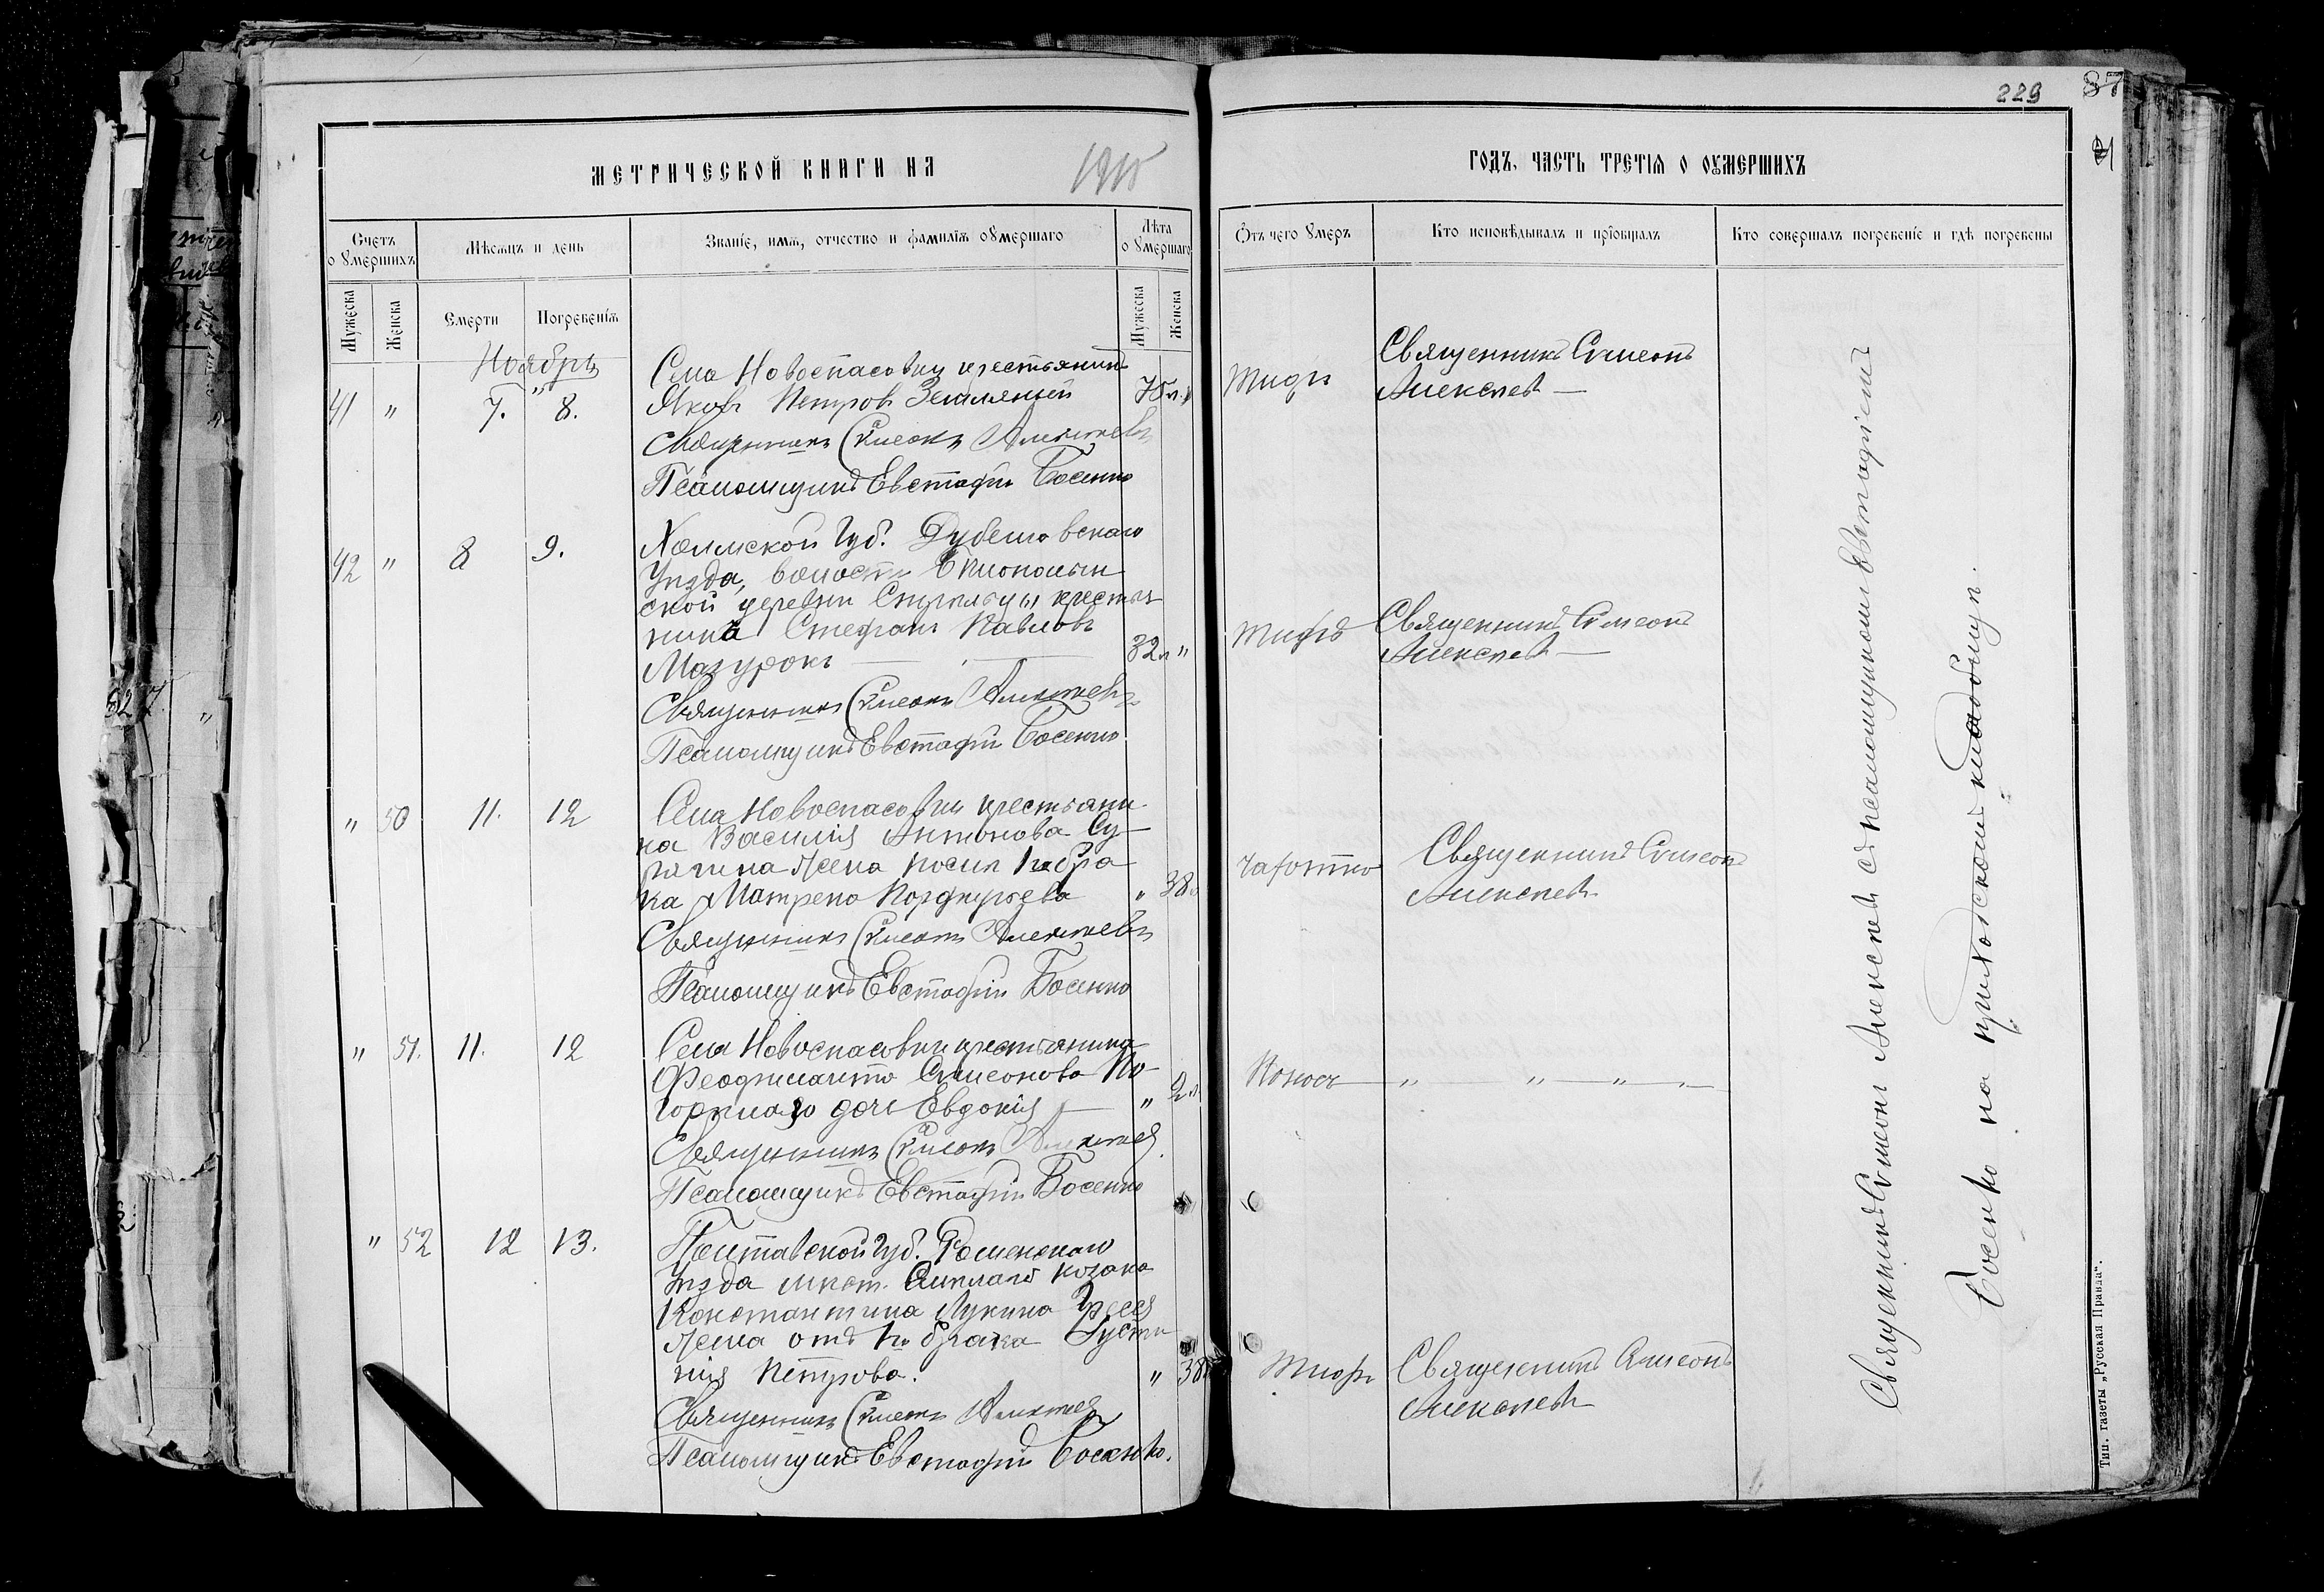 229 87
МЕТРИЧЕСКОЙ КНИГИ НА 1915
ГОДЪ, ЧАСТЬ ТРЕТІѦ О ОУМЕРШИХЪ
Счетъ о ꙋмершихъ
Мѣсѧцъ и день
Званіе, имѧ, отчество и фамиліѧ оумершаго
Лѣта оумершаго
Отъ чего ꙋмеръ
Кто исповѣдывалъ и прїобщалъ
Кто совершалъ погребеніе и гдѣ погребены
Мужеска
Женска
Смерти
Погребеніѧ
Мужеска
Женска
Ноябрь
41 " 7. 8.
Села Новоспасовки крестьянинъ
Яковъ Петровъ Земляной 75 л. "
Тифъ
Священникъ Симеонъ
Алексѣевъ —
Священникъ Симеонъ Алексѣевъ
Псаломщикъ Евстафій Босенко
42 " 8 9.
Холмской Губ. Дубешовскаго
Уѣзда, волости
ской деревни крестья
нинъ Стефанъ Павловъ
Мазурокъ — 32 л "
Тифъ
Священникъ Симеонъ
Алексѣевъ —
Священникъ Симеонъ Алексѣевъ
Псаломщикъ Евстафій Босенко
" 50 11. 12
Села Новоспасовки крестьяни-
на Василія Антонова Су-
жена послѣ 1го бра
ка Матрена Порфирьева " 38 л
чахотка
Священникъ Симеонъ
Алексѣевъ
Священникъ Симеонъ Алексѣевъ
Псаломщикъ Евстафій Босенко
" 51. 11. 12
Села Новоспасовки крестьянина
Феофилакта Симеонова По-
горѣлаго дочь Евдокія — " 2 л.
Поносъ — " " — " "
Священникъ Симеонъ Алексѣевъ
Псаломщикъ Евстафій Босенко
" 52 12 13.
Полтавской Губ. Роменскаго
уѣзда мѣст. Смѣлаго козака
Константина Лукина
жена отъ 1го брака Густи
нія Петрова. " 38 л
Тифъ
Священникъ Симеонъ
Алексѣевъ
Священникъ Симеонъ Алексѣевъ
Псаломщикъ Евстафій Босенко.
Священникъ Симеонъ Алексѣевъ съ псаломщикомъ Евстафіемъ
Босенко на приходскомъ кладбищѣ.
Тип. газеты „Русская Правда“.